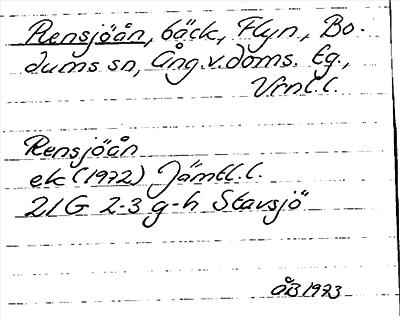 Rensjöån, bäck, Flyn., Bo-
dums sn, Ång.v.doms. Eg.,
Vrnl.l.
Rensjöån
ek (1972) Jämtl.l.
21G 2-3 g-h Stavsjö
ÅB 1973